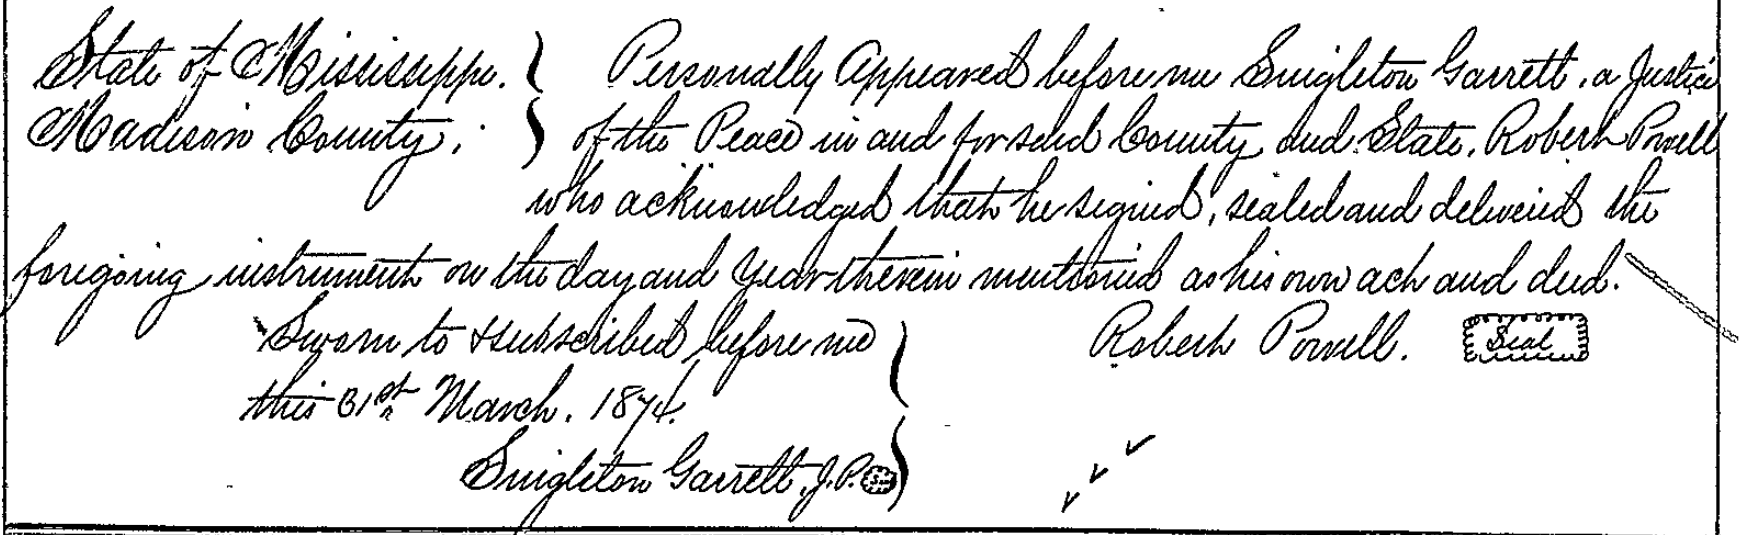 State of Mississippi. } Personally Appeared before me Singleton Garrett, a Justice
Madison County, } of the Peace in and for said County and State, Robert Powell
who acknowledged that he signed, sealed and delivered the
foregoing instrument on the day and year therein mentioned as his own act and deed.
Sworn to & subscribed before me } Robert Powell. Seal
this 31st March. 1874.
Singleton Garrett, J.P.